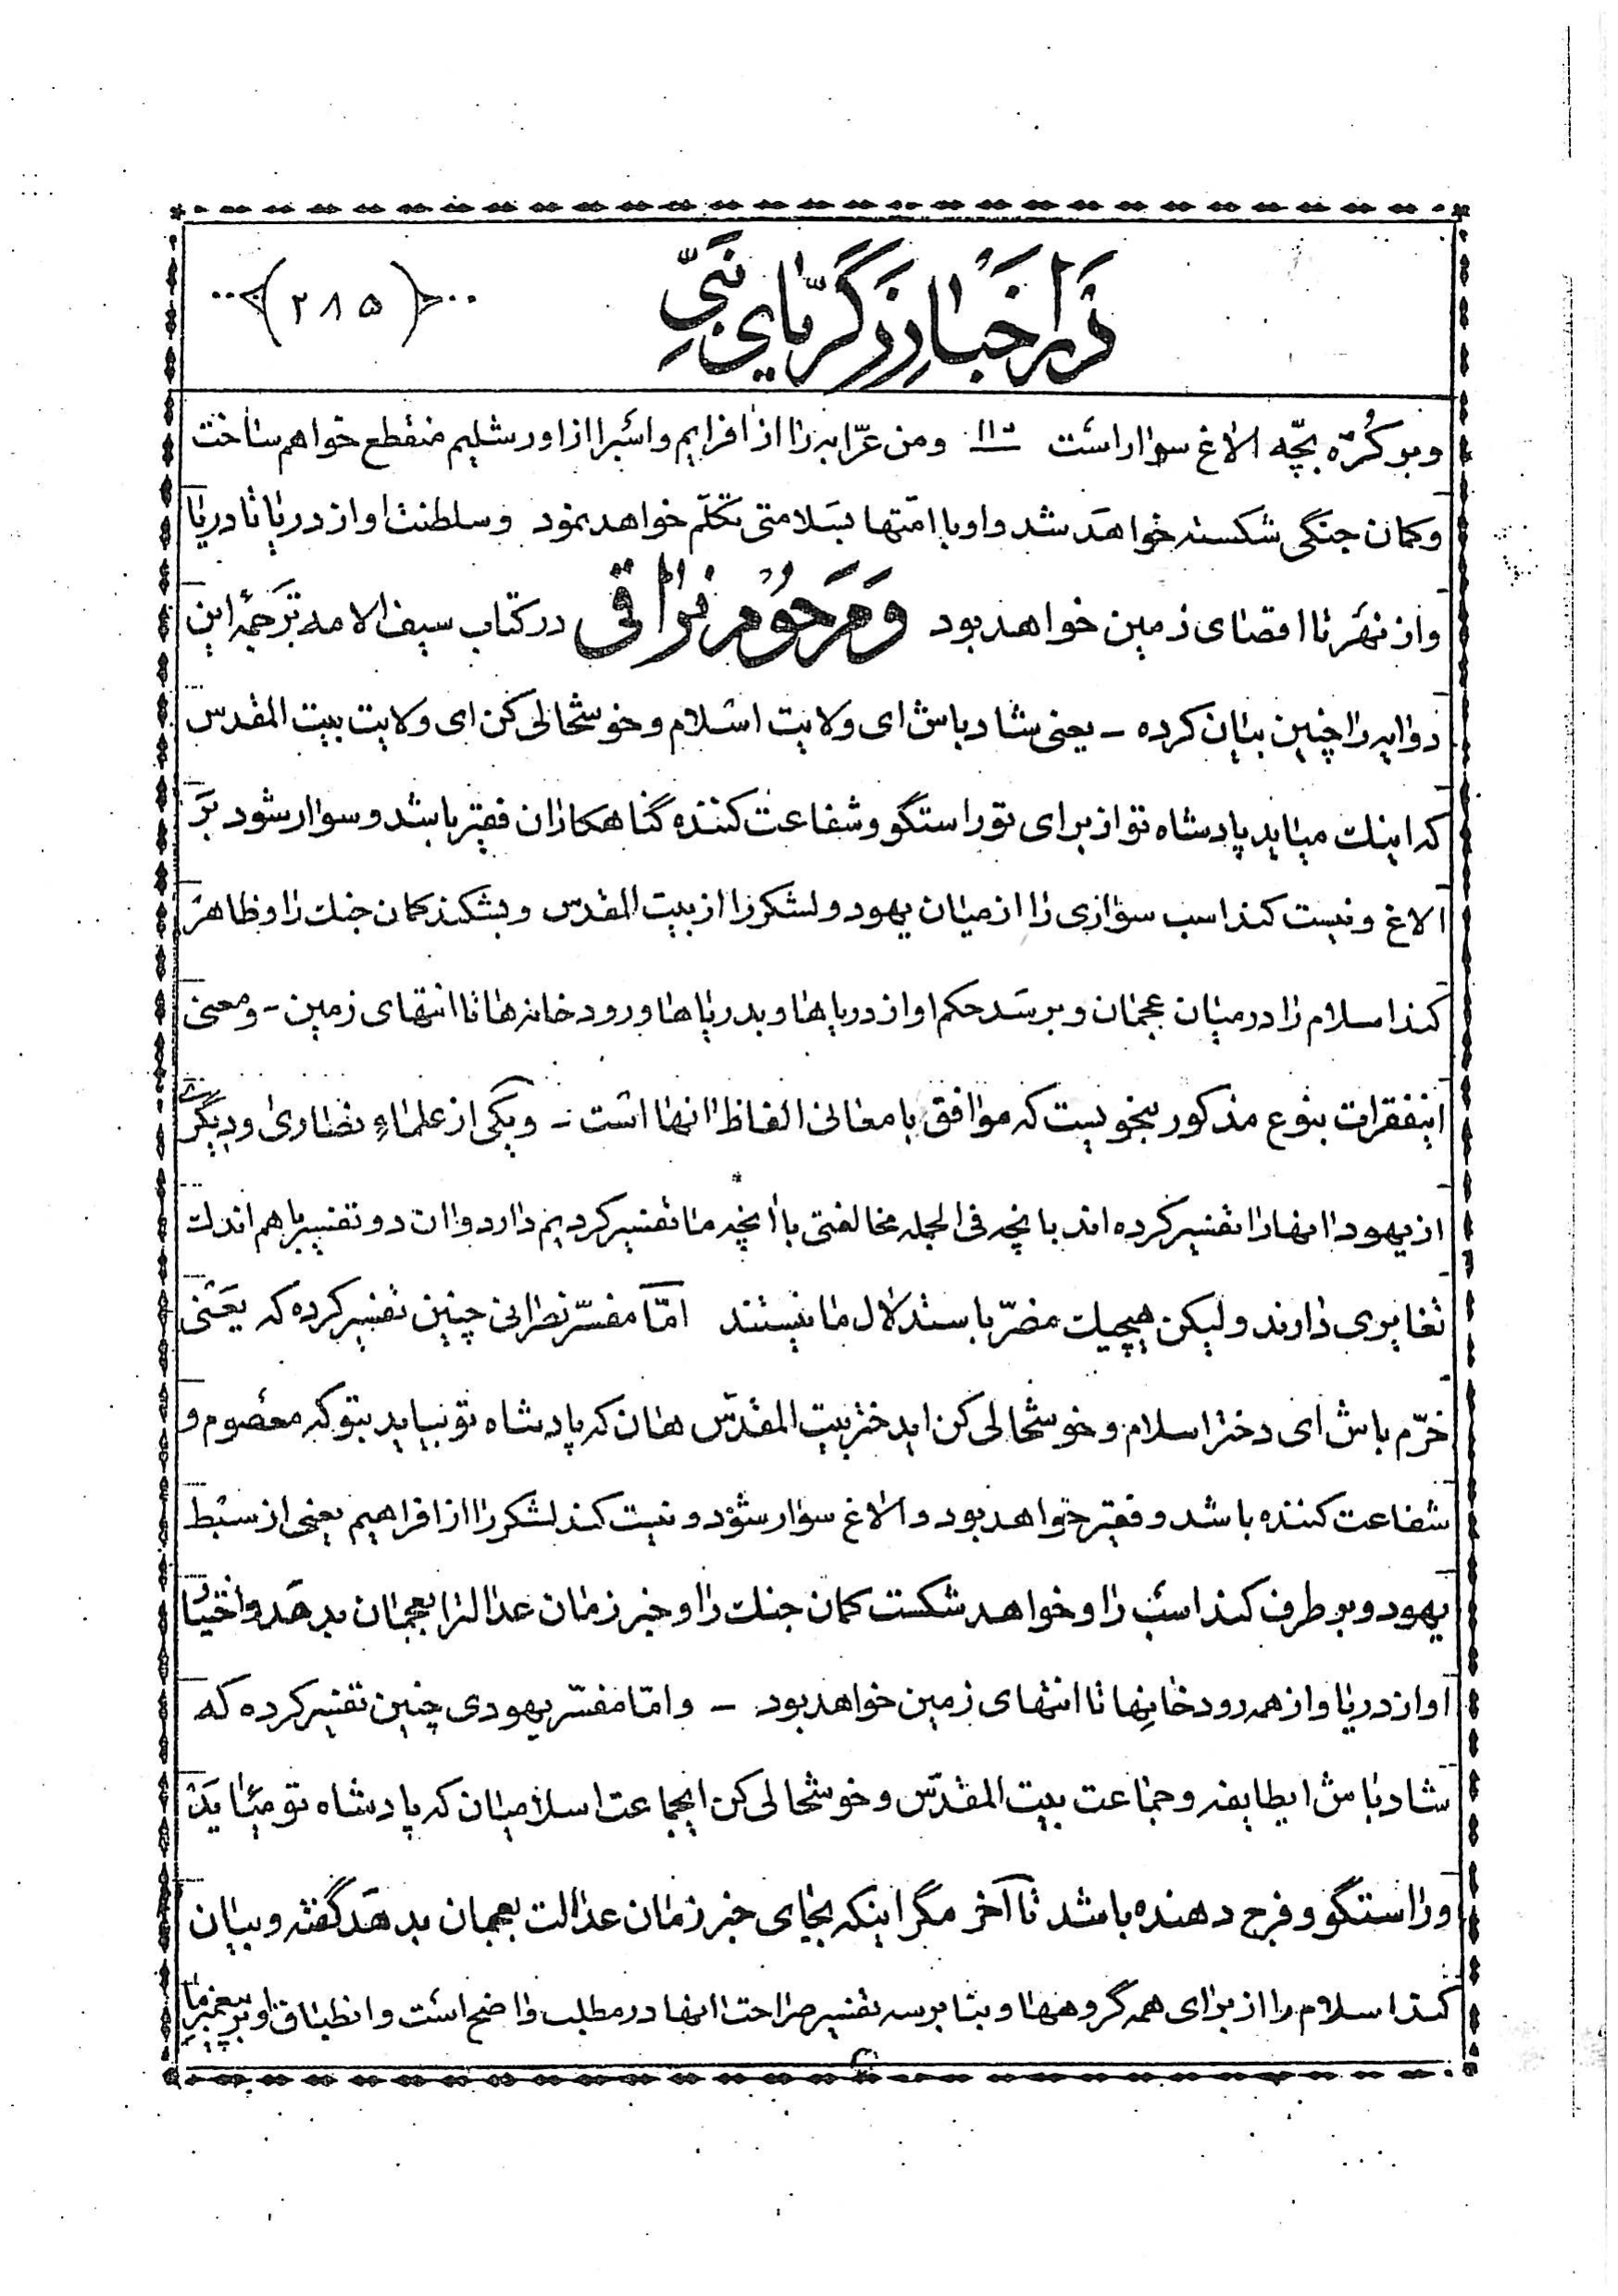 در اخبار زکریای نبی
(۲۸۵)
و بر کُرّه بچّه الاغ سوار است ــ ۱۰ ــ و من عرّابه را از افرایم و اسب را از اورشلیم منقطع خواهم ساخت
و کمان جنگی شکسته خواهد شد و او با امّتها بسلامتی تکلّم خواهد نمود و سلطنت او از دریا تا دریا
و از نهر تا اقصای زمین خواهد بود و مرحوم نراقی در کتاب سیف الامه ترجمهٔ این
دو ایه را چنین بیان کرده ـ یعنی شاد باش ای ولایت اسلام و خوشحالی کن ای ولایت بیت المقدس
که اینک میاید پادشاه تو از برای تو راستگو و شفاعت کننده گناهکاران فقیر باشد و سوار شود بر
الاغ و نیست کند اسب سواری را از میان یهود و لشکر را از بیت المقدس و بشکند کمان جنک را و ظاهر
کند اسلام را در میان عجمان و برسد حکم او از دریاها و بدریاها و رودخانه ها تا انتهای زمین ـ و معنی
اینفقرات بنوع مذکور بنحویست که موافق با معانی الفاظ انها است ـ و یکی از علماءِ نصاری و دیگری
از یهود انها را تفسیر کرده اند بانچه فی الجمله مخالفتی با انچه ما تفسیر کردیم دارد و ان دو تفسیر با هم اندک
تغایری دارند ولیکن هیچیک مضرّ باستدلال ما نیستند امّا مفسّر نصرانی چنین تفسیر کرده که یعنی
خرّم باش ای دختر اسلام و خوشحالی کن ایدختر بیت المقدّس هان که پادشاه تو بیاید بتو که معصوم و
شفاعت کننده باشد و فقیر خواهد بود و الاغ سوار شود و نیست کند لشکر را از افراهیم یعنی از سبط
یهود و بر طرف کند اسب را و خواهد شکست کمان جنک را و خبر زمان عدالترا بعجمان بدهد و اختیا
او از دریا و از همه رودخانها تا انتهای زمین خواهد بود ـ و امّا مفسّر یهودی چنین تفسیر کرده که
شاد باش ایطایفه و جماعت بیت المقدّس و خوشحالی کن ایجماعت اسلامیان که پادشاه تو میاید
و راستگو و فرج دهنده باشد تا آخر مگر اینکه بجای خبر زمان عدالت بعجمان بدهد گفته و بیان
کند اسلام را از برای همه گروهها و بنا بر سه تفسیر صراحت انها در مطلب واضح است و انطباق او بر پیغمبر ما